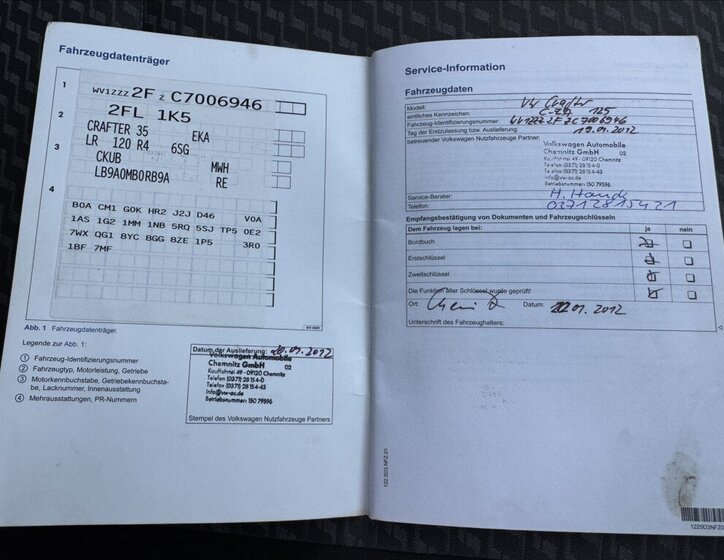 Fahrzeugdatenträger
1
WV1ZZZ 2F Z C7006946
2
2FL 1K5
CRAFTER 35 EKA
3
LR 120 R4 6SG
CKUB MWH
LB9A0MB0RB9A RE
4
B0A CM1 G0K HR2 J2J D46 V0A
1AS 1G2 1MM 1NB 5RQ 5SJ TP5 0E2
7WX QG1 8YC BGG BZE 1P5 3R0
1BF 7MF
Abb. 1 Fahrzeugdatenträger.
Legende zu Abb. 1:
1 Fahrzeug-Identifizierungsnummer
2 Fahrzeugtyp, Motorleistung, Getriebe
3 Motorkennbuchstabe, Getriebekennbuchsta-
be, Lacknummer, Innenausstattung
4 Mehrausstattungen, PR-Nummern
Datum der Auslieferung: 20.01.2012
Volkswagen Automobile
Chemnitz GmbH 02
Kauffahrtei 49 · 09120 Chemnitz
Telefon (03 71) 28 15 4-0
Telefax (03 71) 28 15 4-43
info@vw-ac.de
Betriebsnummer: 150 79596
Stempel des Volkswagen Nutzfahrzeuge Partners
Service-Information
Fahrzeugdaten
Modell: VW Crafter
amtliches Kennzeichen: 125
Fahrzeug-Identifizierungsnummer: WV1ZZZ 2F Z C7006946
Tag der Erstzulassung bzw. Auslieferung: 19.01.2012
betreuender Volkswagen Nutzfahrzeuge Partner:
Volkswagen Automobile
Chemnitz GmbH 02
Kauffahrtei 49 · 09120 Chemnitz
Telefon (03 71) 28 15 4-0
Telefax (03 71) 28 15 4-43
info@vw-ac.de
Betriebsnummer: 150 79596
Service-Berater:
Telefon: 03712815421
Empfangsbestätigung von Dokumenten und Fahrzeugschlüsseln
Dem Fahrzeug lagen bei: ja nein
Bordbuch
Erstschlüssel
Zweitschlüssel
Die Funktion aller Schlüssel wurde geprüft!
Ort: Datum: 20.01.2012
Unterschrift des Fahrzeughalters:
122.5D3.NFZ.01